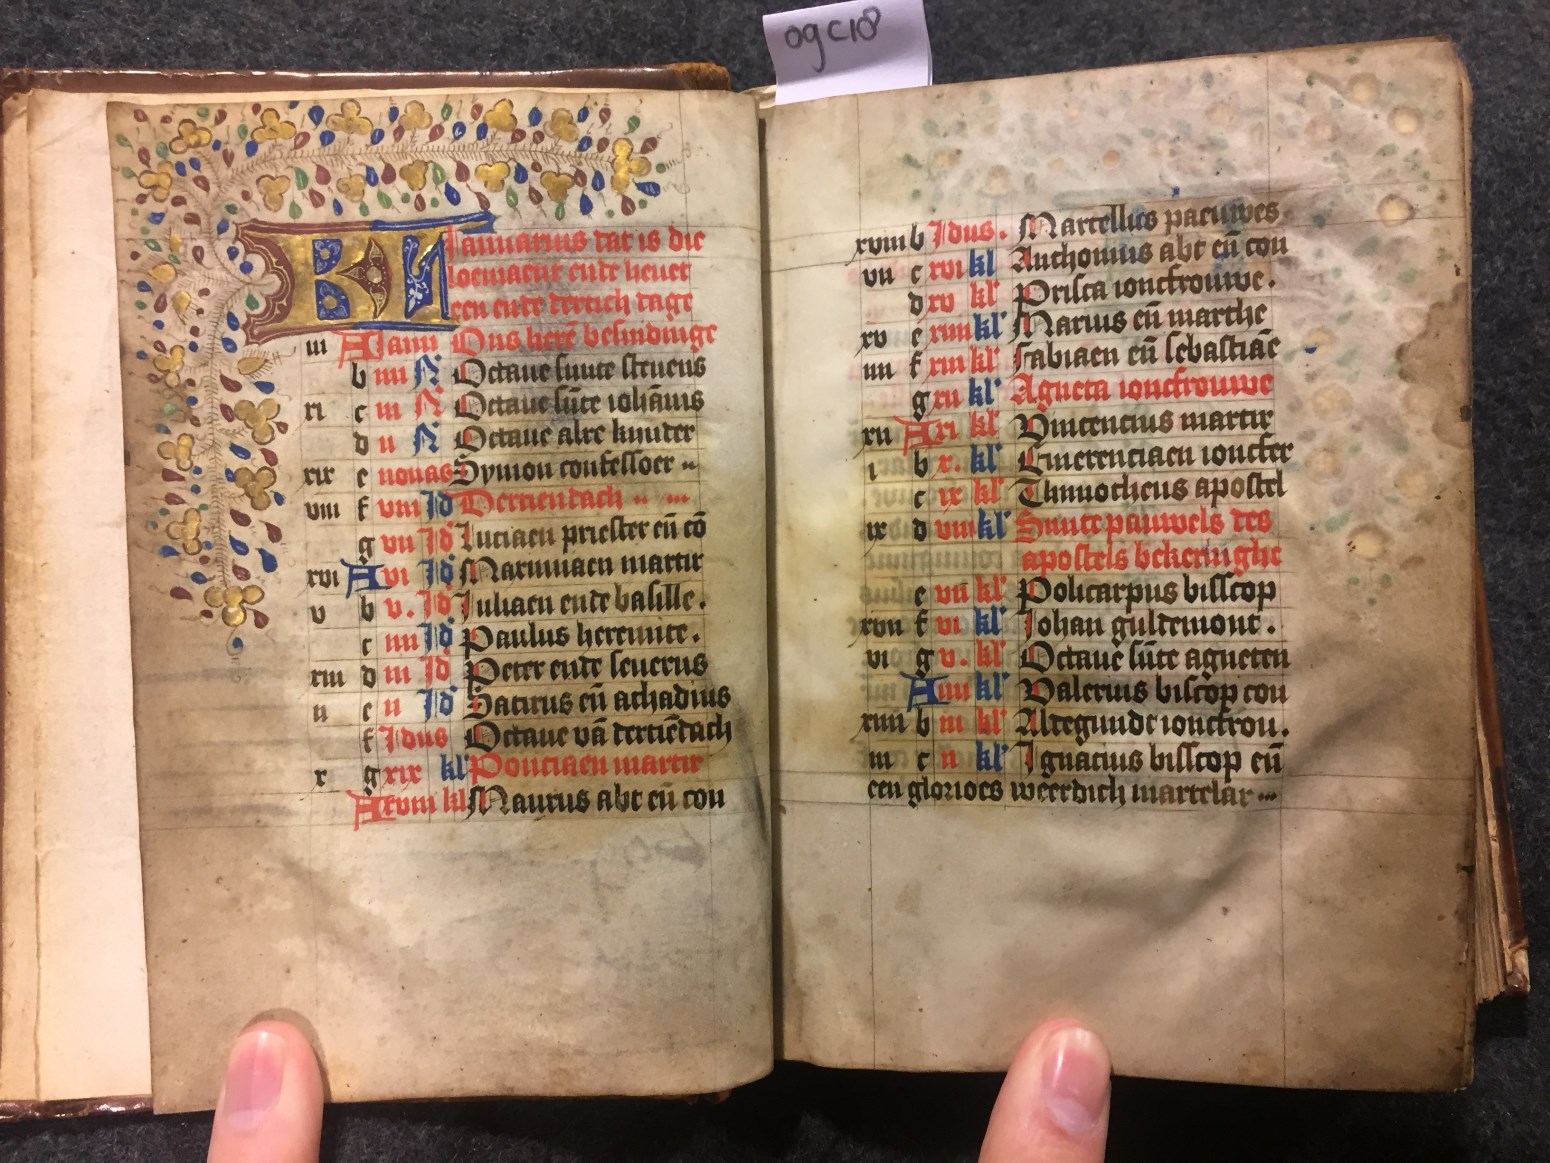 ogc18
KL Januarius dat is die
loemaent ende heuet
een ende dertich dage
iii A Ianu Ons herē besindinge
b iiii N Octaue sunte steuens
xi c iii N Octaue sūte iohānis
d ii N Octaue alre kinder
xix e nonas Symon confessoer
viii f viii Id Dertiendach
g vii Id Luciaen priester eñ cō
xvi A vi Id Marimiaen martir
v b v. Id Iuliaen ende basille.
c iiii Id Paulus heremite.
xiii d iii Id Peter ende seuerus
ii e ii Id Satirus eñ achadius
f Idus Octaue vā dertiēdach
x g xix kl Ponciaen martir
A xviii kl Maurus abt eñ con
xviii b Idus. Marcellus paeuwes
vii c xvi kl Anthonius abt eñ con
d xv kl Prisca ioncfrouwe.
xv e xiiii kl Marius eñ marthe
iiii f xiii kl Fabiaen eñ sebastiāe
g xii kl Agneta ioncfrouwe
xii A xi kl Vincencius martir
i b x. kl Emerenciaen ioncfer
c ix kl Thimotheus apostel
ix d viii kl Sunte pauwels des
apostels bekeringhe
e vii kl Policarpus bisscop
xvii f vi kl Iohan guldemont.
vi g v. kl Octaue sūte agneten
A iiii kl Valerius biscop con
xiiii b iii kl Aldegunde ioncfrou.
iii c ii kl Ignacius bisscop eñ
een glorioes weerdich martelar